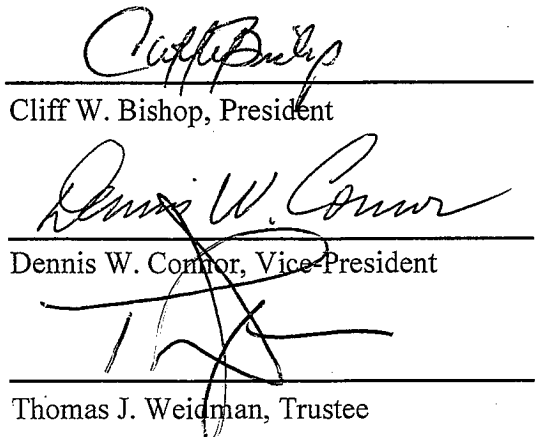 Cliff W. Bishop, President
Dennis W. Connor
Dennis W. Connor, Vice-President
Thomas J. Weidman, Trustee